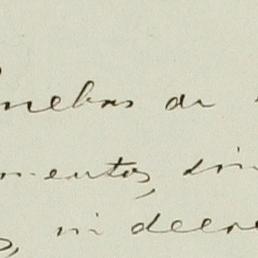 pruebas de
mentos, sin
, ni decre